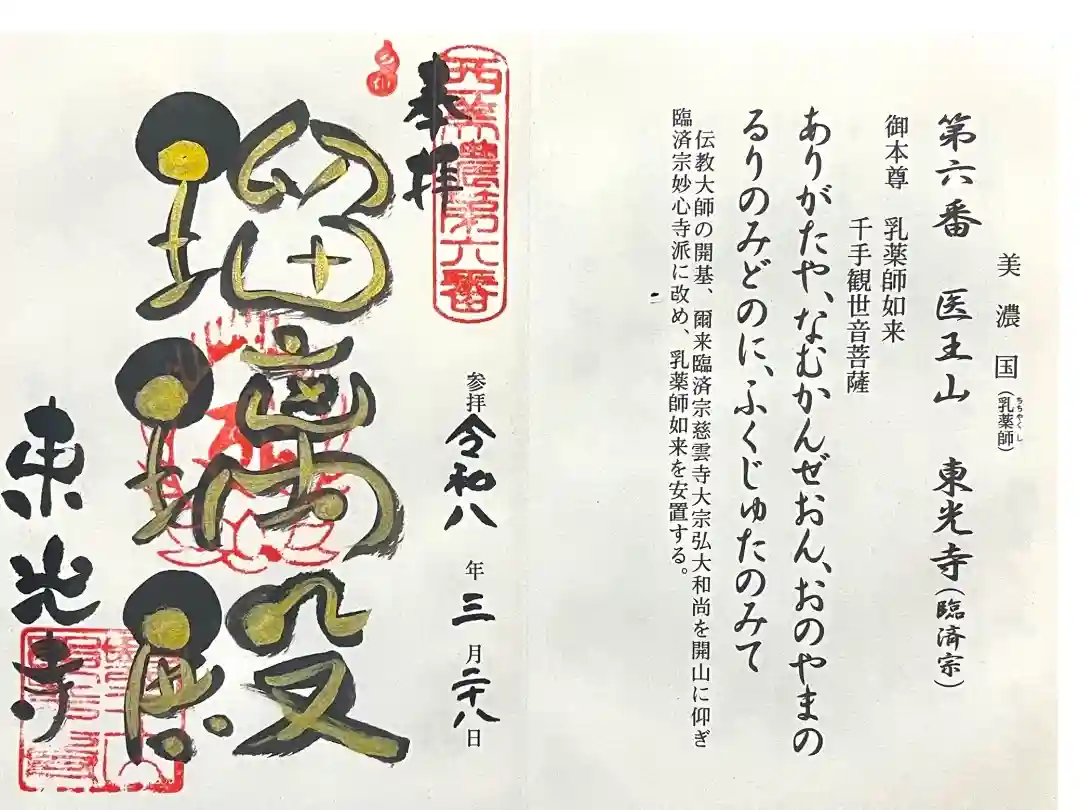 美濃国(乳薬師)
ちちやくし
第六番 医王山 東光寺(臨済宗)
御本尊 乳薬師如来
千手観世音菩薩
ありがたや、なむかんぜおん、おのやまの
るりのみどのに、ふくじゅたのみて
伝教大師の開基、爾来臨済宗慈雲寺大宗弘大和尚を開山に仰ぎ
臨済宗妙心寺派に改め、乳薬師如来を安置する。
西美濃第六番
奉拝
参拝 令和八年三月二十八日
瑠璃殿
東光寺